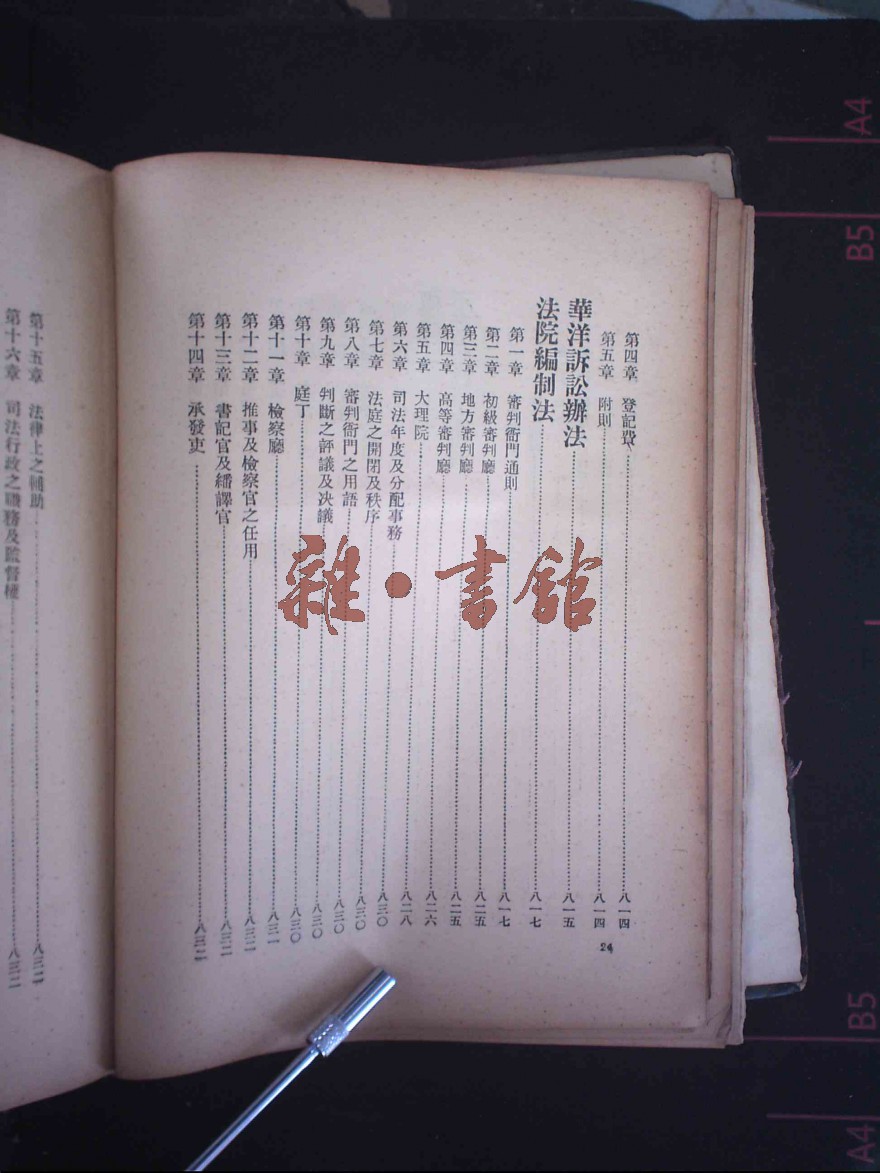 第四章 登記費 八一四
第五章 附則 八一四
華洋訴訟辦法 八一五
法院編制法 八一七
第一章 審判衙門通則 八一七
第二章 初級審判廳 八二五
第三章 地方審判廳 八二五
第四章 高等審判廳 八二五
第五章 大理院 八二六
第六章 司法年度及分配事務 八二八
第七章 法庭之開閉及秩序 八三〇
第八章 審判衙門之用語 八三〇
第九章 判斷之評議及决議 八三〇
第十章 庭丁 八三〇
第十一章 檢察廳 八三一
第十二章 推事及檢察官之任用 八三二
第十三章 書記官及繙譯官 八三二
第十四章 承發吏 八三二
24
第十五章 法律上之輔助 八三二
第十六章 司法行政之職務及監督權 八三二
雜·書館
A4
B5
B5
A4